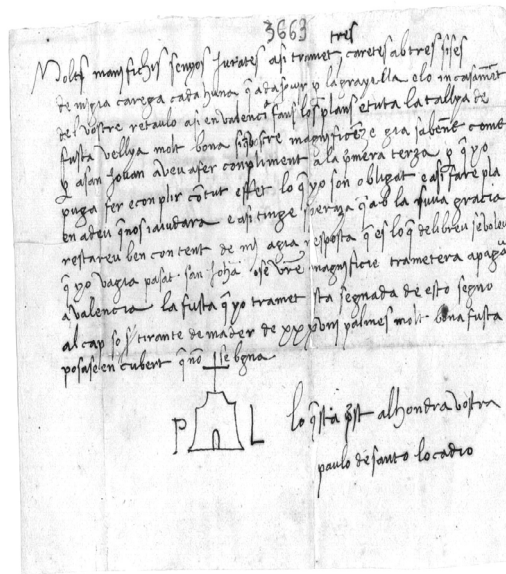 3663 tres
Molts manifichs senyos Jurates asi tramet caretes ab tres sises
de migra carega cada huna q̃ada p la grayella e lo incasamẽt
del vostre retaulo asi en Valencia faus los plans e tuta la tallya de
fusta vellya molt bona si vostre magnificenze gia sabene come
p̱ a san Jouan aveu a fer conpliment a la p̃mera terza p q̃ yo
puga fer econplir cõ tut effet lo q̃ yo son obligat e asi fare pla
en a deu q̃ nos aiudara e asi tinge speraza q̃ ab la suva gracia
rostareu ben content de mi agia resposta q̃ es lo q̃ delibreu se voleu
q̃ yo vagia pasat san Johã o se vr̃e magnificie trametera apagã
a valencia la fusta q̃ yo tramet sta segnada de esto segno
al cap so si tirante de mader de xxxvııı palmes molt bona fusta
posase en cubert q̃ nõ se bgna
P L
lo q̃ sta p̃st al hondra vostra
paulo de santo locadio